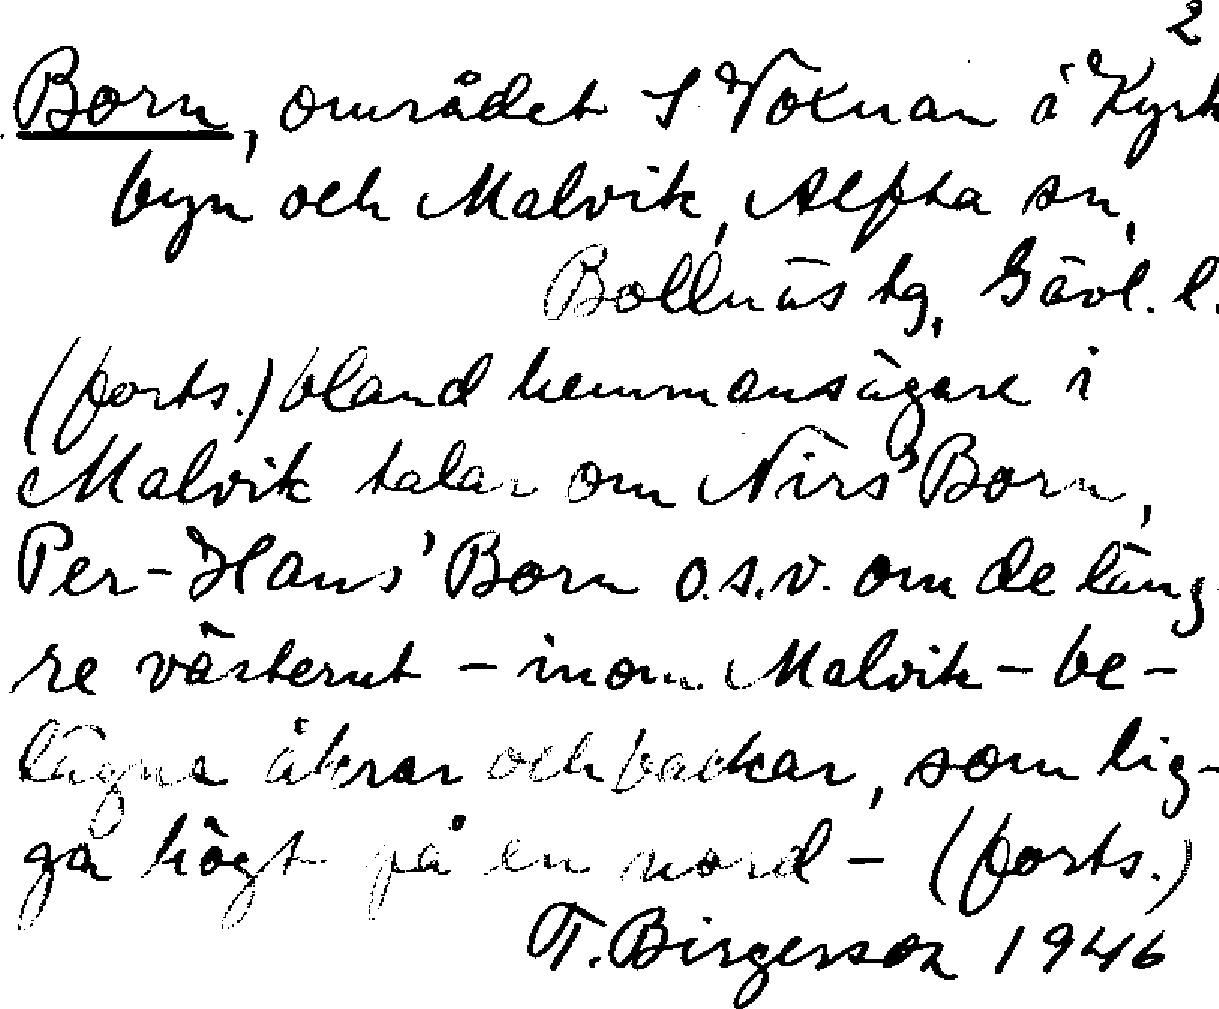 2
Born, området S Voxnan å Kyrk
byn och Malvik, Alfta sn,
Bollnäs tg, Gävl. l.
(forts.) bland hemmansägare i
Malvik talar om Nirs' Born,
Per-Hans' Born o.s.v. om de läng
re västerut - inom Malvik - be-
lägna åkrar och backar, som lig-
ga högt på en nord - (forts.)
T. Birgersson 1946